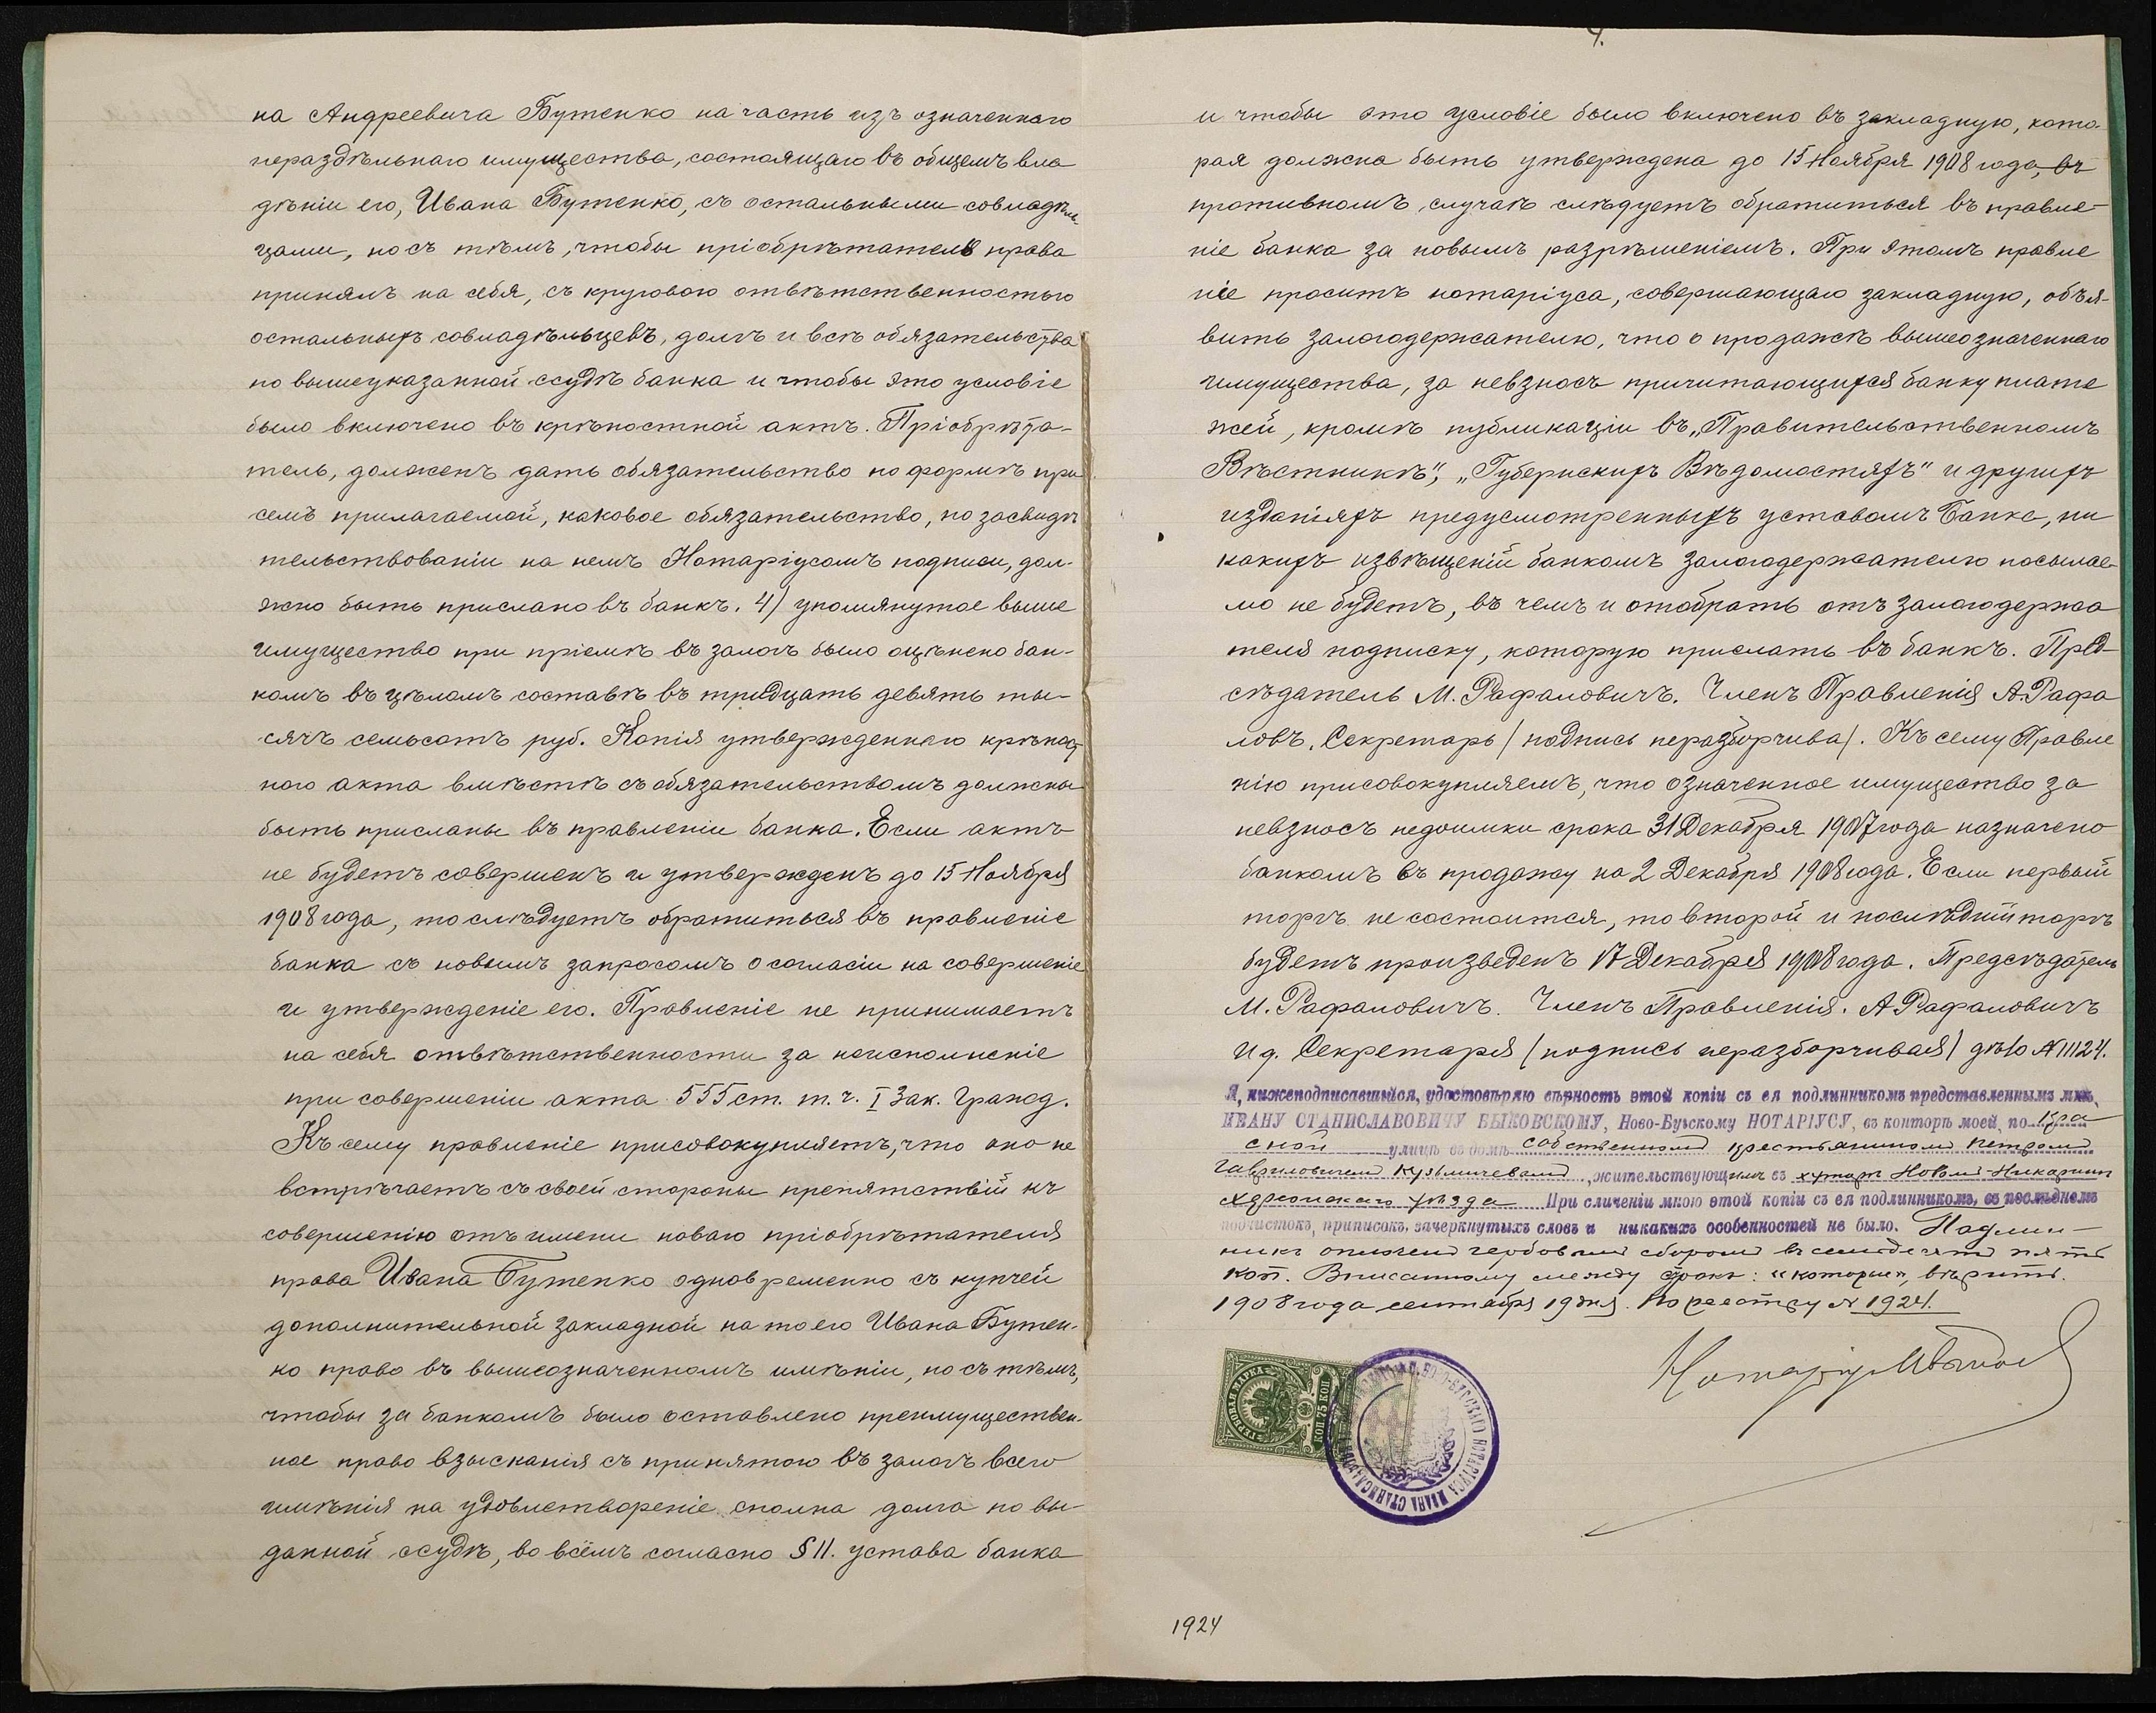 на Андреевича Бутенко на часть изъ означеннаго
нераздѣльнаго имущества, состоящаго въ общемъ вла
дѣніи его, Ивана Бутенко, съ остальными совладѣль
цами, но съ тѣмъ, чтобы пріобрѣтатель права
принялъ на себя, съ круговою отвѣтственностью
остальныхъ совладѣльцевъ, долгъ и всѣ обязательства
по вышеуказанной ссудѣ банка и чтобы это условіе
было включено въ крѣпостной актъ. Пріобрѣта-
тель, долженъ дать обязательство по формѣ при
семъ прилагаемой, каковое обязательство, по засвидѣ
тельствованіи на немъ Нотаріусомъ подписи, дол-
жно быть прислано въ банкъ. 4) упомянутое выше
имущество при пріемѣ въ залогъ было оцѣнено бан-
комъ въ цѣломъ составѣ въ тридцать девять ты-
сячъ семьсотъ руб. Копія утвержденнаго крѣпост
ного акта вмѣстѣ съ обязательствомъ должны
быть присланы въ правленіи банка. Если актъ
не будетъ совершенъ и утвержденъ до 15 Ноября
1908 года, то слѣдуетъ обратиться въ правленіе
банка съ новымъ запросомъ о согласіи на совершеніе
и утвержденіе его. Правленіе не принимаетъ
на себя отвѣтственности за неисполненіе
при совершеніи акта 555 ст. т. ч. I Зак. Гражд.
Къ сему правленіе присовокупляетъ, что оно не
встрѣчаетъ съ своей стороны препятствій къ
совершенію отъ имени новаго пріобрѣтателя
права Ивана Бутенко одновременно съ купчей
дополнительной закладной на то его Ивана Бутен-
ко право въ вышеозначенномъ имѣніи, но съ тѣмъ,
чтобы за банкомъ было оставлено преимуществен-
ное право взысканія съ принятаго въ залогъ всего
имѣнія на удовлетвореніе сполна долга по вы-
данной ссудѣ, во всёмъ согласно § 11. устава банка
4.
и чтобы это условіе было включено въ закладную, кото-
рая должна быть утверждена до 15 Ноября 1908 года, въ
противномъ случаѣ слѣдуетъ обратиться въ правле-
ніе банка за новымъ разрѣшеніемъ. При этомъ правле
ніе проситъ нотаріуса, совершающаго закладную, объя-
вить залогодержателю, что о продажѣ вышеозначеннаго
имущества, за невзносъ причитающихся банку плате
жей, кромѣ публикаціи въ „Правительственномъ
Вѣстникѣ", „Губернскихъ Вѣдомостяхъ" и другихъ
изданіяхъ предусмотренныхъ уставомъ Банка, ни
какихъ извѣщеній банкомъ залогодержателю посылае-
мо не будетъ, въ чемъ и отобрать отъ залогодержа
теля подписку, которую прислать въ банкъ. Пред-
сѣдатель М. Рафаловичъ. Членъ Правленія А. Рафа
ловъ. Секретарь (подпись неразборчива). Къ сему Правле
нію присовокупляемъ, что означенное имущество за
невзносъ недоимки срока 31 Декабря 1907 года назначено
банкомъ въ продажу на 2 Декабря 1908 года. Если первый
торгъ не состоится, то второй и послѣдній торгъ
будетъ произведенъ 17 Декабря 1908 года. Предсѣдатель
М. Рафаловичъ. Членъ Правленія. А Рафаловичъ
И д. Секретаря (подпись неразборчивая) дѣло № 11124.
Я, нижеподписавшійся, удостовѣряю вѣрность этой копіи съ ея подлинникомъ представленнымъ мнѣ,
ИВАНУ СТАНИСЛАВОВИЧУ БЫКОВСКОМУ, Ново-Бугскому НОТАРІУСУ, въ конторѣ моей, по Кра
сной улицѣ въ домѣ собственномъ крестьяниномъ Петромъ
Гавриловичемъ Кузьмичевымъ, жительствующимъ въ хуторѣ Новом-
Херсонскаго уѣзда При сличеніи мною этой копіи съ ея подлинникомъ, въ послѣднемъ
подчистокъ, приписокъ, зачеркнутыхъ словъ и никакихъ особенностей не было. Подлин-
никъ оплаченъ гербовымъ сборомъ въ семьдесятъ пять
коп. Вписанному между строкъ: "которые", вѣрить.
1908 года сентября 19 дня. По реестру № 1924.
Нотаріусъ
ГЕРБОВАЯ МАРКА
КОП 75 КОП
НОТАРІУСА ИВАНА СТАНИСЛАВОВ
1924